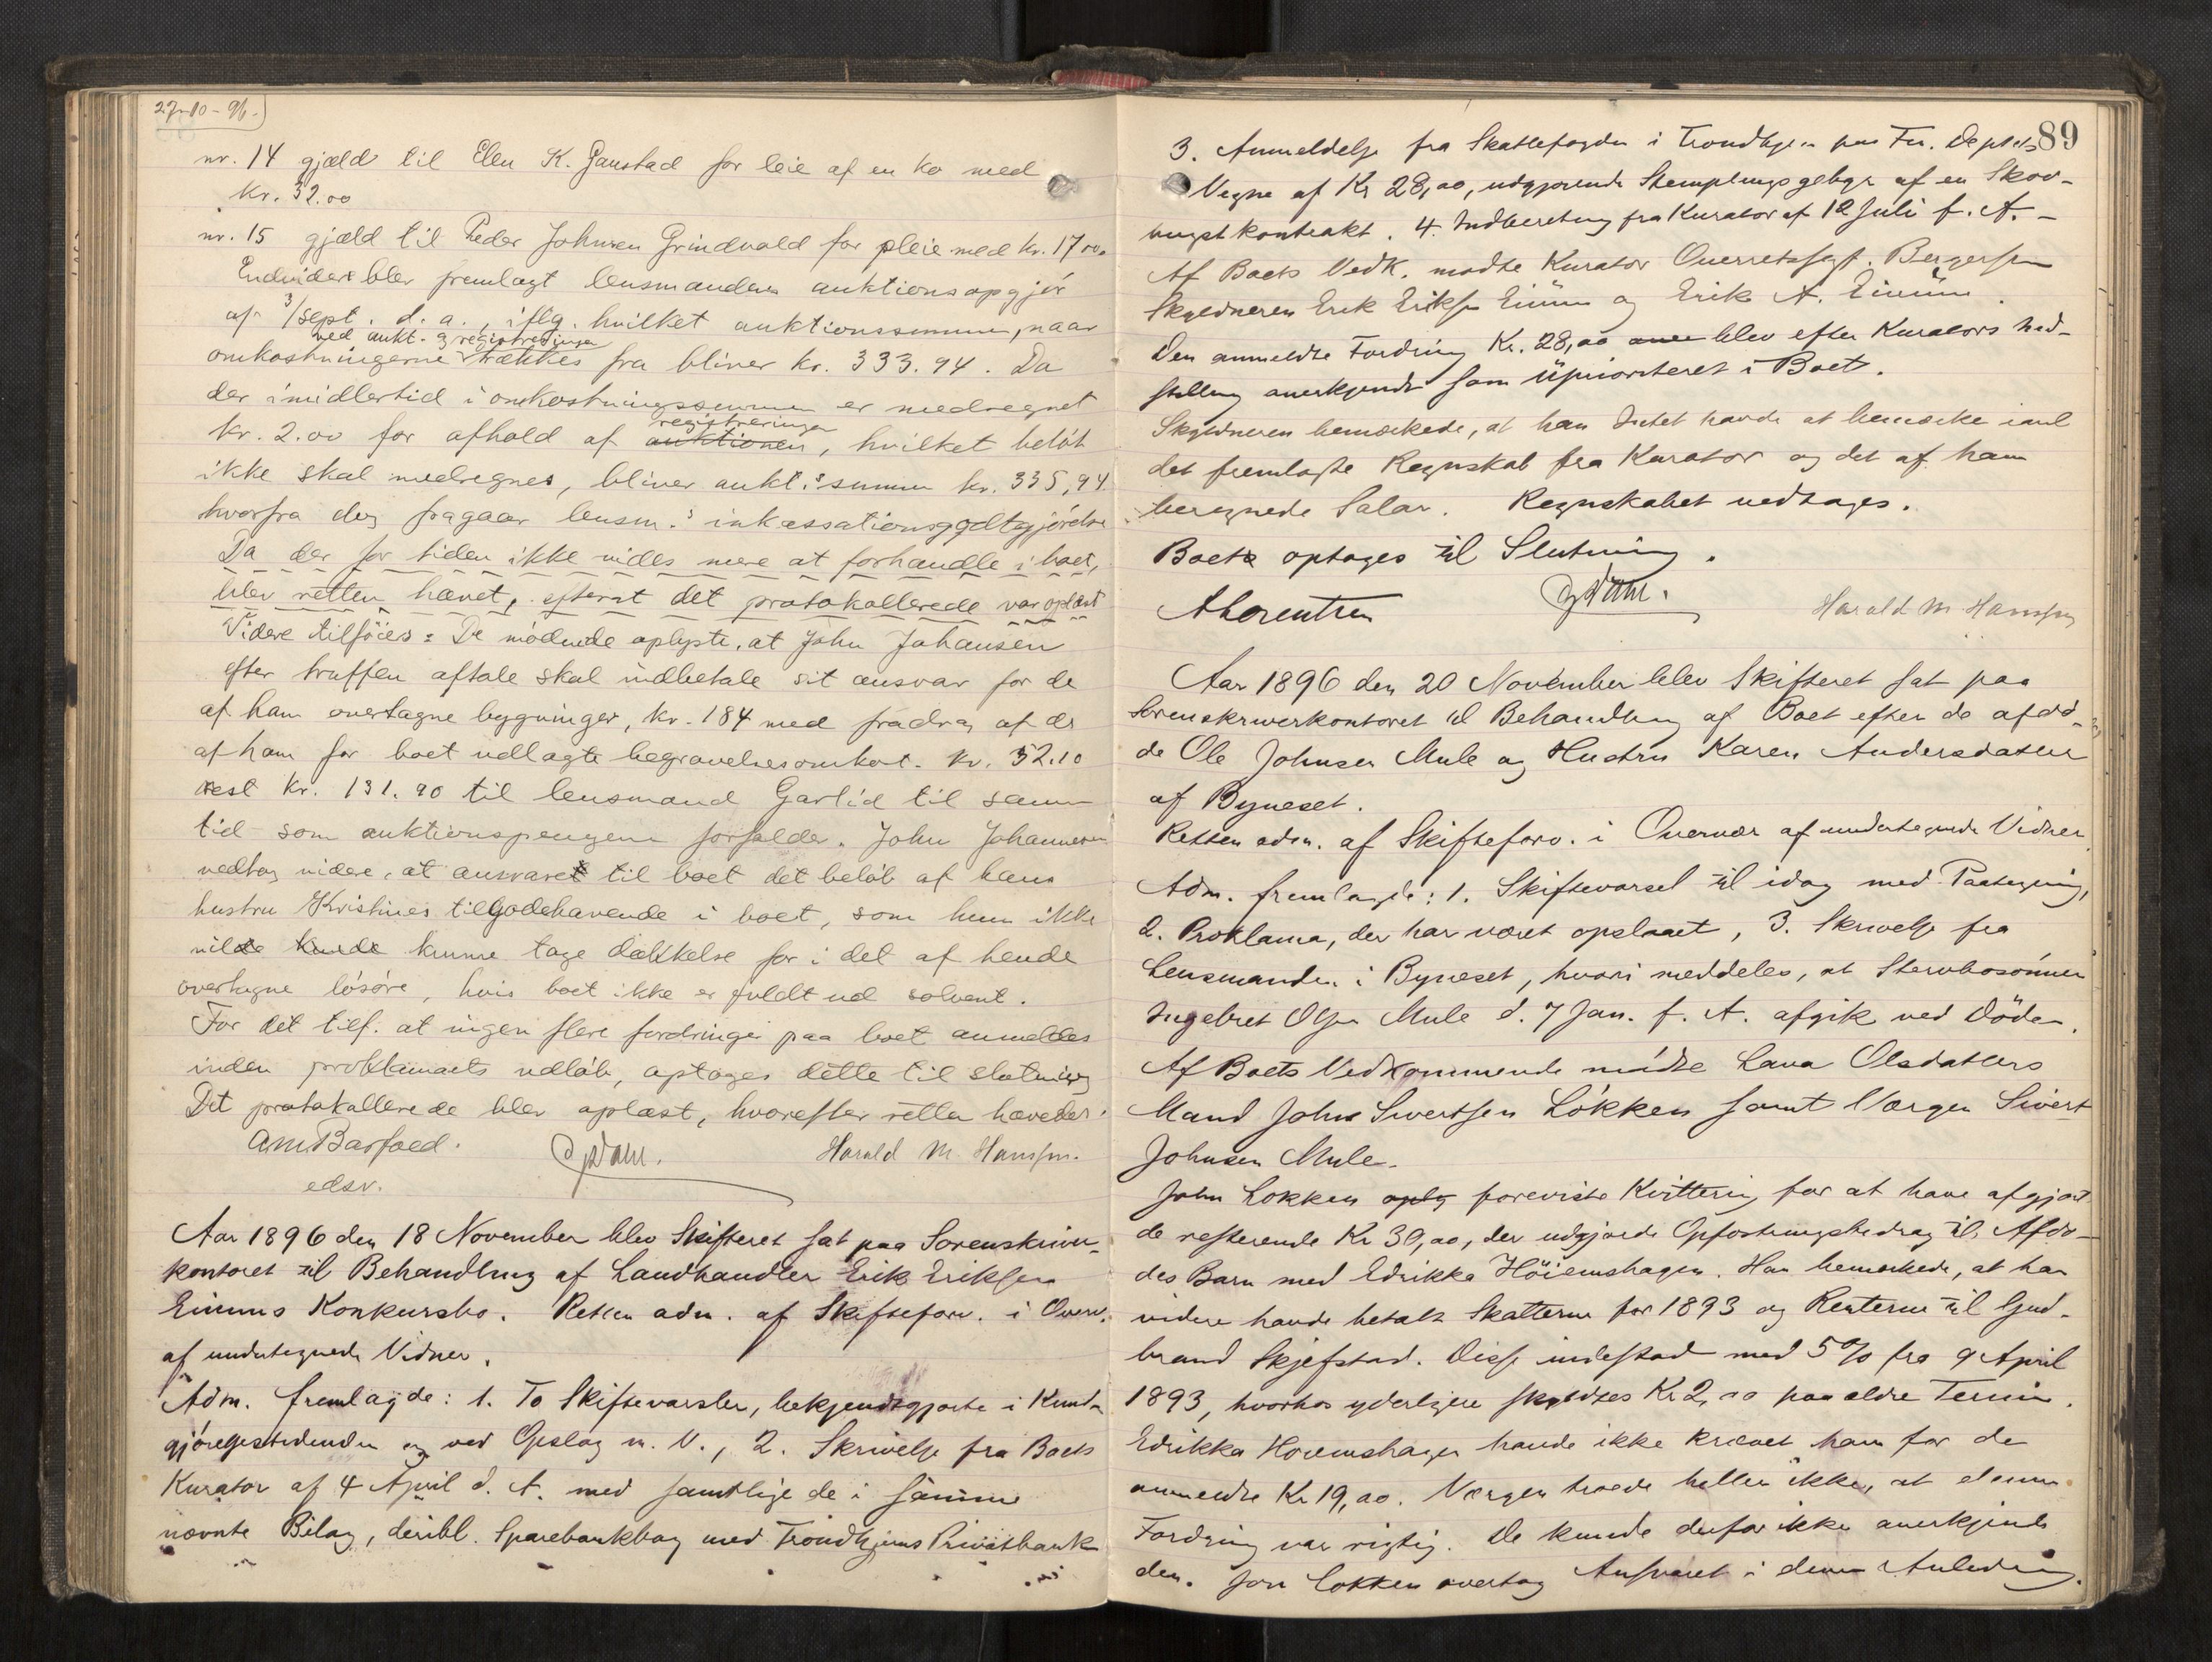 27-10-96.
nr. 14 gjæld til Elen K. Gaustad for leie af en ko med
kr. 32.00
nr. 15 gjæld til Peder Johnsen Grindvald for pleie med kr. 17.00.
Endvidere blev fremlagt lensmandens auktionsopgjör
af 3/sept. d. a., iflg. hvilket auktionssummen, naar
ved aukt. og registreringen
omkostningerne trækkes fra bliver kr. 333.94. Da
der imidlertid i omkostningssummen er medregnet
registreringen
kr. 2.00 for afhold af auktionen, hvilket belöb
ikke skal medregnes, bliver aukt.s summen kr. 335,94
hvorfra dog fragaar lensm.s inkassationsgodtgjörelse
Da der for tiden ikke vides mere at forhandle i boet,
blev retten hævet, efterat det protokollerede var oplæst
Videre tilföies: De mödende oplyste, at John Johansen
efter truffen aftale skal indbetale sit ansvar for de
af ham overtagne bygninger, kr. 184 med fradrag af de
af ham for boet udlagte begravelsesomkost. kr. 52.10
rest kr. 131.90 til lensmand Garlid til samme
tid som auktionspengene forfalder. John Johannesen
vedtog videre, at ansvaret til boet det belöb af hans
hustru Kristines tilgodehavende i boet, som hun ikke
vilde kunde kunne tage dækkelse for i det af hende
overtagne lösöre, hvis boet ikke er fuldt ud solvent.
For det tilf. at ingen flere fordringer paa boet anmeldes
inden proklamaets udlöb, optages dette til slutning
Det protokollerede blev oplæst, hvorefter retten hævedes.
Am. Barfoed. Harald M. Hansen.
edsv.
Aar 1896 den 18 November blev Skifteret sat paa Sorenskriver-
kontoret til Behandling af Landhandler Erik Eriksen
Einums Konkursbo. Retten adm. af Skifteforv. i Overv.
af undertegnede Vidner.
Adm. fremlagde: 1. To Skiftevarsler, bekjendtgjorte i Kund-
gjörelsestidenden og ved Opslag m. V., 2. Skrivelse fra Boets
Kurator af 4 April d. A. med samtlige de i samme
nævnte Bilag, deribl. Sparebankbog med Trondhjems Privatbank
89
3. Anmeldelse fra Skattefogden i Trondhjem paa Fin. Deptets
Vegne af Kr 28,00, udgjørende Stemplingsgebyr af en Skov-
hugst kontrakt. 4. Indberetning fra Kurator af 12 Juli f. A. -
Af Boets Vedk. mødte Kurator Overretssagf. Bergersen
Skyldneren Erik Eriksen Einum og Erik A. Einum.
Den anmeldte Fordring Kr. 28,00 aner blev efter Kurators Ind-
stilling anerkjendt som Uprioriteret i Boet.
Skyldneren bemærkede, at han Intet havde at bemærke imod
det fremlagte Regnskab fra Kurator og det af ham
beregnede Salær. Regnskabet vedtages.
Boets optages til Slutning.
A Lorentzen Harald M. Hansen
Aar 1896 den 20 November blev Skifteret sat paa
Sorenskriverkontoret til Behandling af Boet efter de afdö-
de Ole Johnsen Mule og Hustru Karen Andersdatter
af Byneset.
Retten adm. af Skifteforv. i Overvær af undertegnede Vidner.
Adm. fremlagde: 1. Skiftevarsel til idag med Paategning,
2. Proklama, der har været opslaaet, 3. Skrivelse fra
Lensmanden i Byneset, hvori meddeles, at Stervbosønnen
Ingebret Olsen Mule d. 7 Jan. f. A. afgik ved Döden.
Af Boets Vedkommende mödte Lava Olsdatters
Mand John Sivertsen Lökken samt Værgen Sivert
Johnsen Mule.
John Lökken oply foreviste Kvittering for at have afgjort
de resterende Kr 30,00, der udgjorde Opfostringsbidrag til Afdö-
des Barn med Edrikka Höiemshagen. Han bemærkede, at han
videre havde betalt Skatterne for 1893 og Renterne til Gud-
brand Skjefstad. Disse indestod med 5% fra 9 April
1893, hvorhos yderligere skyldtes Kr 2,00 paa ældre Termin.
Edrikka Hoiemshagen havde ikke krævet ham for de
anmeldte Kr 19,00. Værgen troede heller ikke, at denne
Fordring var rigtig. De kunde derfor ikke anerkjende
den. John Lökken overtog Ansvaret i denne Anledning.